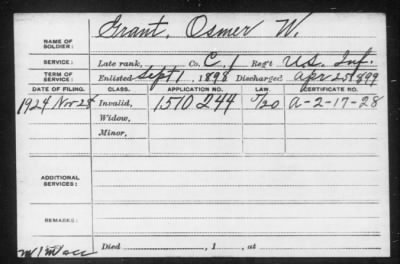 NAME OF SOLDIER: Grant, Osmer W.
SERVICE: Late rank, Co. C, 1 Reg't U.S. Inf.
TERM OF SERVICE: Enlisted Sept 1, 1898 Discharged Apr 25 1899
DATE OF FILING. CLASS. APPLICATION NO. LAW. CERTIFICATE NO.
1924 Nov 28 Invalid, 1510 244 A-2-17-28
Widow,
Minor,
ADDITIONAL SERVICES:
REMARKS:
Died , 1 , at